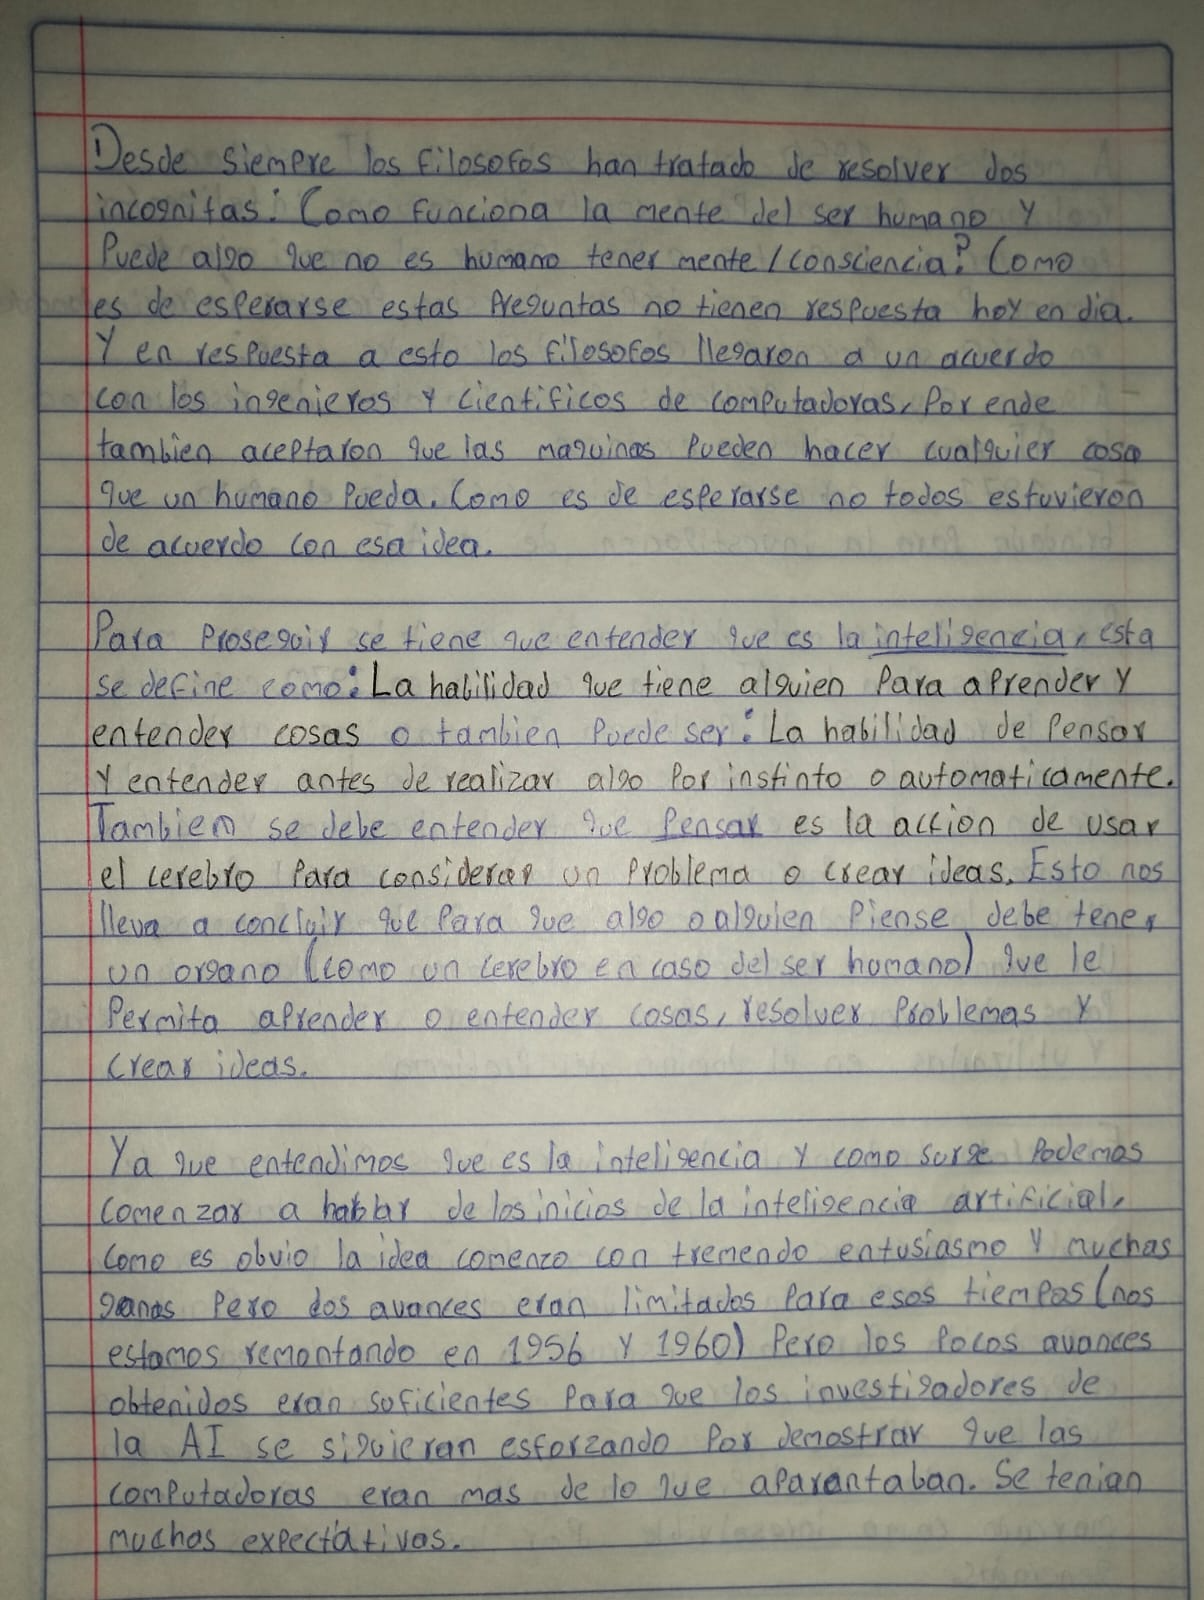 Desde siempre los filosofos han tratado de resolver dos
incognitas: Como funciona la mente del ser humano y
Puede algo que no es humano tener mente / consciencia? Como
es de esperarse estas preguntas no tienen respuesta hoy en dia.
Y en respuesta a esto los filosofos llegaron a un acuerdo
con los ingenieros y cientificos de computadoras, Por ende
tambien aceptaron que las maquinas pueden hacer cualquier cosa
que un humano pueda. Como es de esperarse no todos estuvieron
de acuerdo con esa idea.
Para proseguir se tiene que entender que es la inteligencia, esta
se define como: La habilidad que tiene alguien para aprender y
entender cosas o tambien puede ser: La habilidad de pensar
y entender antes de realizar algo por instinto o automaticamente.
Tambien se debe entender que pensar es la accion de usar
el cerebro para considerar un problema o crear ideas. Esto nos
lleva a concluir que para que algo o alguien piense debe tener
un organo (como un cerebro en caso del ser humano) que le
permita aprender o entender cosas, resolver problemas y
crear ideas.
Ya que entendimos que es la inteligencia y como surge podemos
comenzar a hablar de los inicios de la inteligencia artificial,
como es obvio la idea comenzo con tremendo entusiasmo y muchas
ganas pero dos avances eran limitados para esos tiempos (nos
estamos remontando en 1956 y 1960) pero los pocos avances
obtenidos eran suficientes para que los investigadores de
la AI se siguieran esforzando por demostrar que las
computadoras eran mas de lo que aparantaban. Se tenian
muchas expectativas.